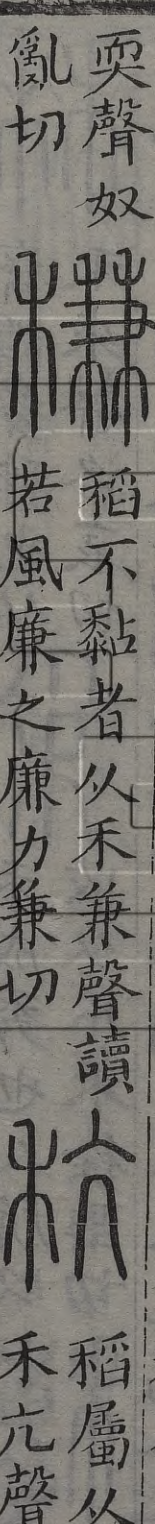 耎聲奴
亂切
稴
稻不黏者从禾兼聲讀
若風廉之廉力兼切
秔
稻屬从
禾亢聲